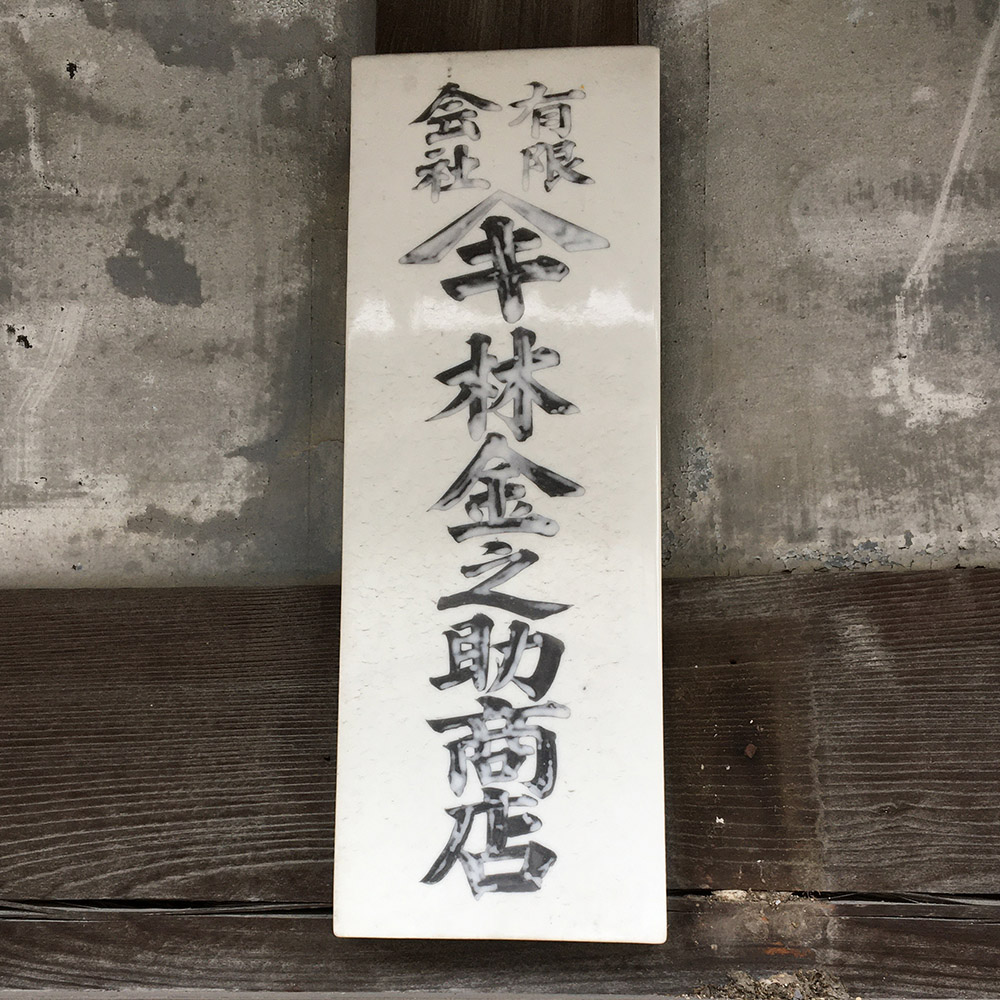 有限
会社
キ林金之助商店